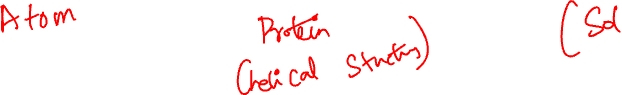 Atom
Protein
(Chemical Structures)
(Sol